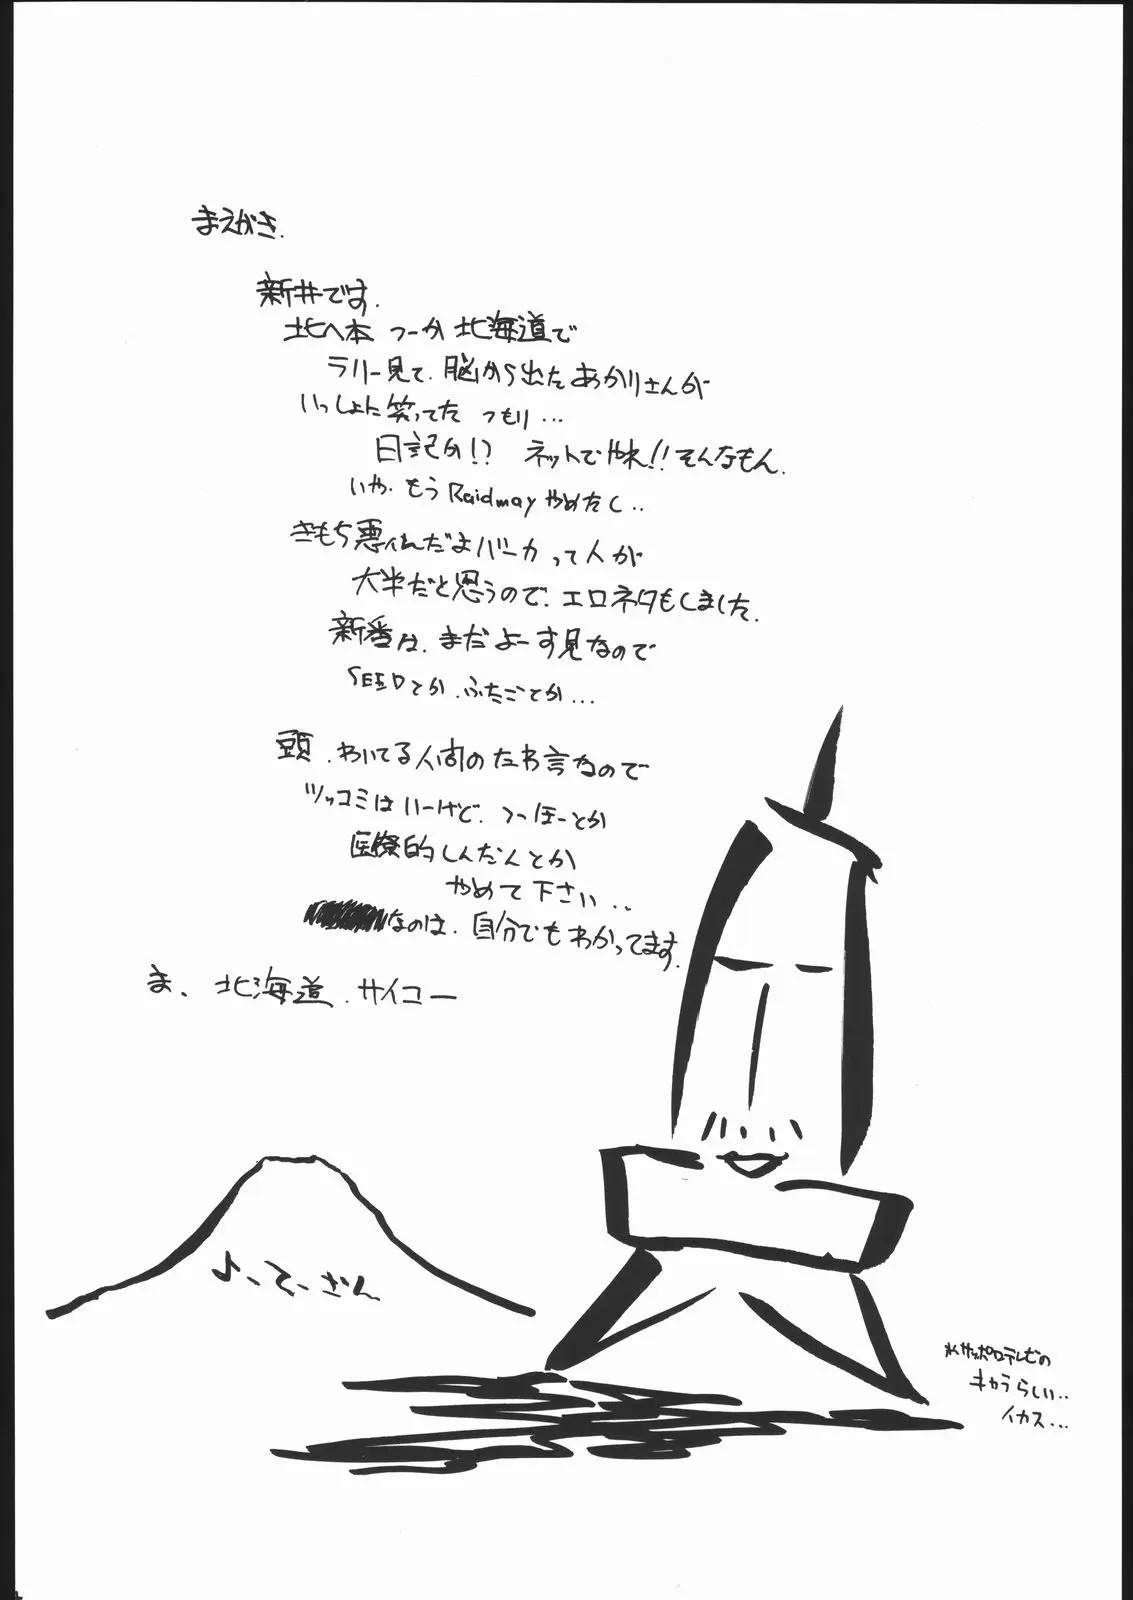 まえがき.
新井です.
北へ本 つーか 北海道で
ラリー見て. 脳から出たあかりさんが
いっしょに笑ってた つもり...
日記か!? ネットでやれ!! そんなもん.
いや. もう Raidmay やめたし..
きもち悪いんだよバーカって人が
大半だと思うので. エロネタもしました.
新番は. まだよーす見なので
SEEDとか. ふたごとか...
頭. わいてる人間のたわ言なので
ツッコミはいーけど. つーほーとか
医療的しんだんとか
やめて下さい..
なのは. 自分でもわかってます.
ま、 北海道. サイコー
よーてーさん
※サッポロテレビの
キャラらしい..
イカス...